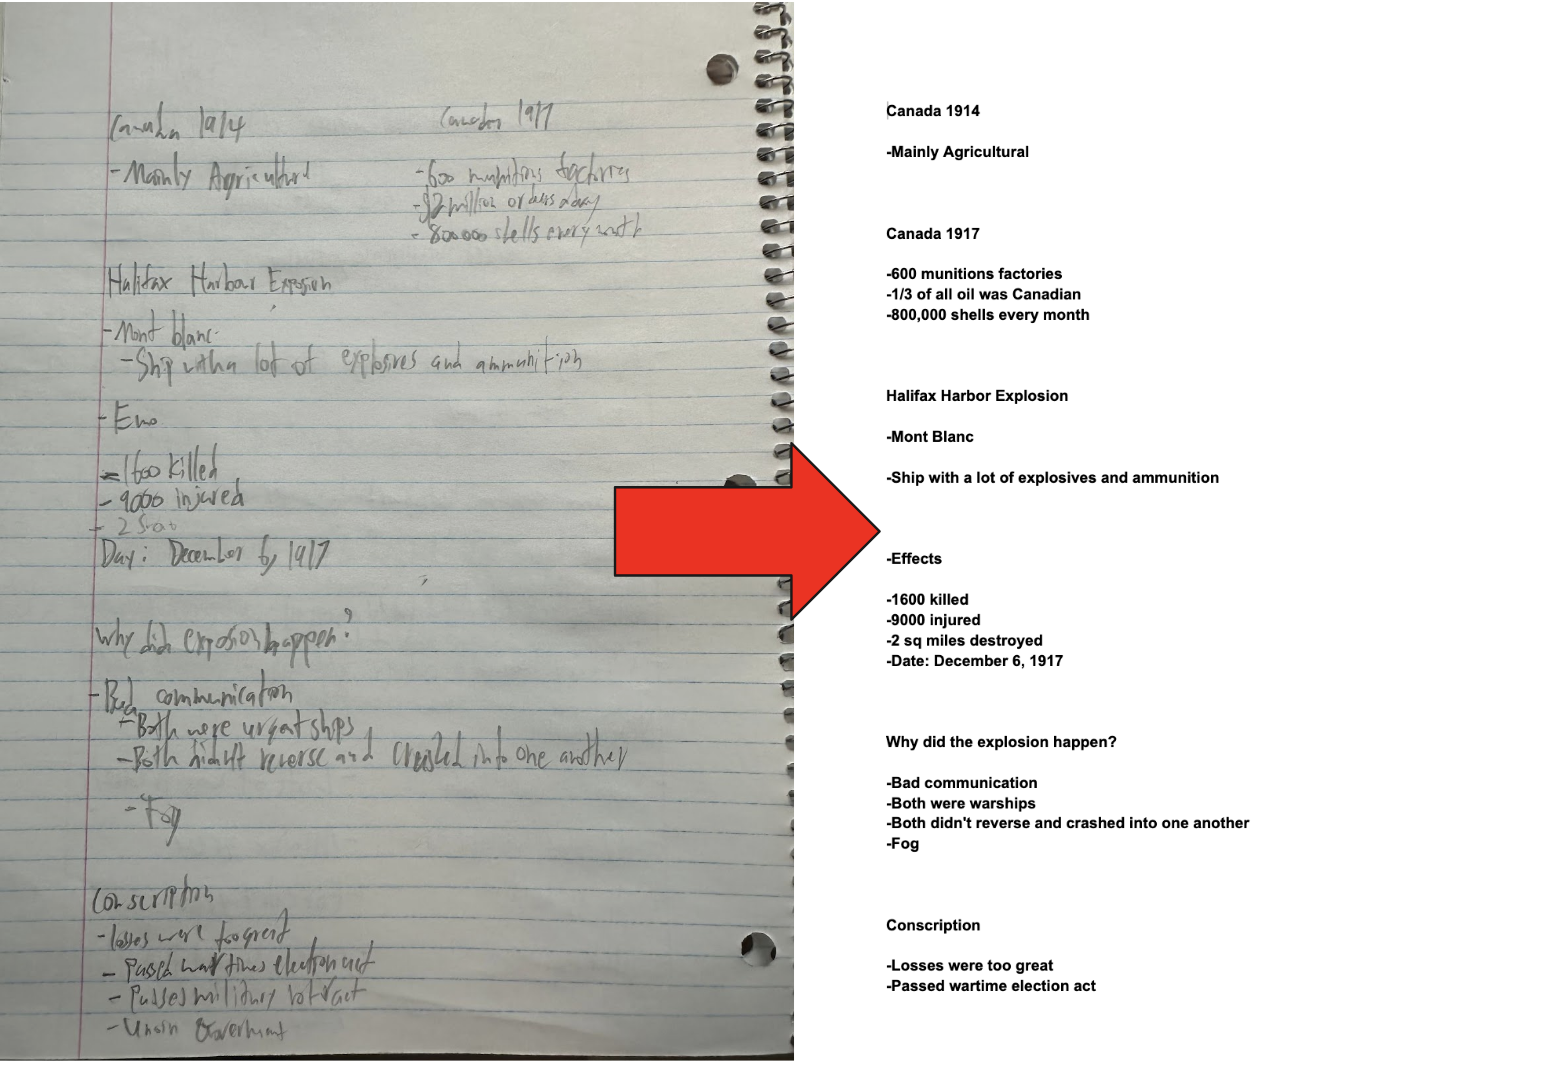 Canada 1914
- Mainly Agricultural
Canada 1917
- 600 munitions factories
- $2 million orders a day
- 800000 shells every month
Halifax Harbour Explosion
- Mont blanc
- Ship with a lot of explosives and ammunition
- 1600 killed
- 9000 injured
- 2
Day: December 6, 1917
Why did explosion happen?
- Bad communication
- Both were urgent ships
- Both didn't reverse and crashed into one another
- Fog
Conscription
- losses were too great
- Passed war times election act
- Passes military vote act
- Union Government
Canada 1914
-Mainly Agricultural
Canada 1917
-600 munitions factories
-1/3 of all oil was Canadian
-800,000 shells every month
Halifax Harbor Explosion
-Mont Blanc
-Ship with a lot of explosives and ammunition
-Effects
-1600 killed
-9000 injured
-2 sq miles destroyed
-Date: December 6, 1917
Why did the explosion happen?
-Bad communication
-Both were warships
-Both didn't reverse and crashed into one another
-Fog
Conscription
-Losses were too great
-Passed wartime election act